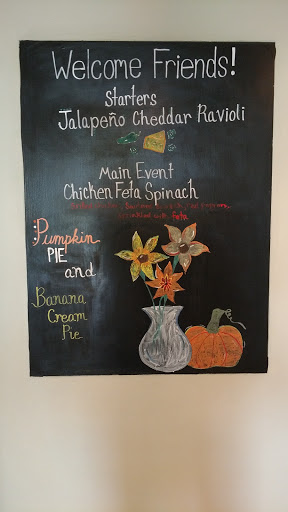 Welcome Friends!
Starters
Jalapeño Cheddar Ravioli
Main Event
Chicken Feta Spinach
sprinkled with feta
:Pumpkin
PIE
and
Banana
Cream
Pie